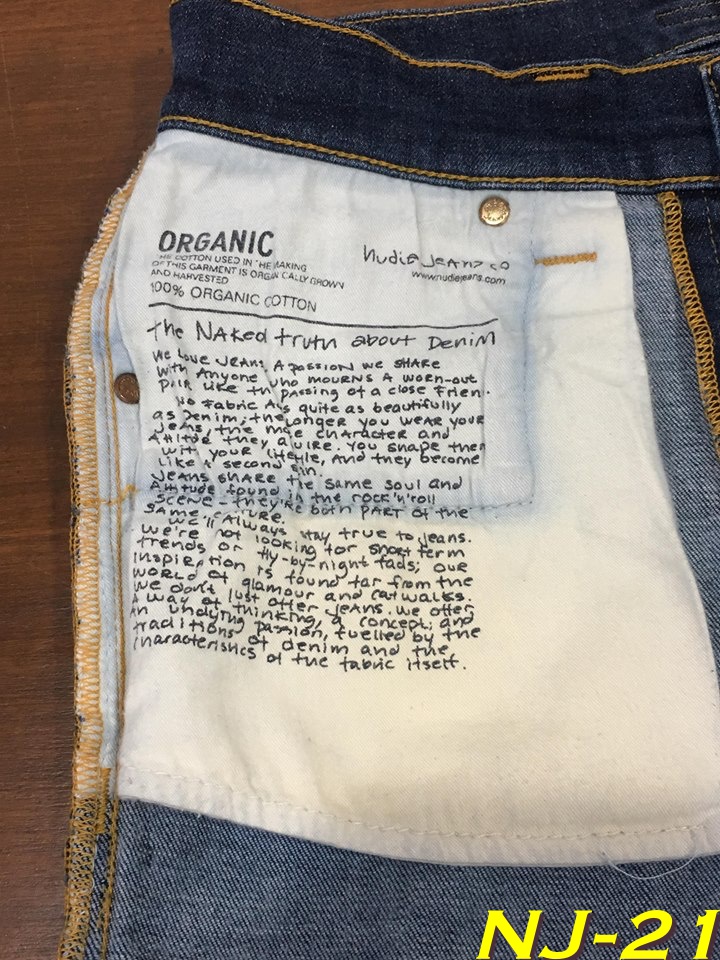 ORGANIC
THE COTTON USED IN THE MAKING
OF THIS GARMENT IS ORGANICALLY GROWN
AND HARVESTED
100% ORGANIC COTTON
Nudie Jeans co
www.nudiejeans.com
The Naked truth about Denim
We love jeans, A passion we share
with Anyone who mourns A worn-out
pair like the passing of a close frien
No fabric ages quite as beautifully
as Denim, the longer you wear your
Jeans, the more character and
Attitude they acquire. You shape them
with your lifestyle, And they become
like a second skin.
Jeans share the same soul and
Attitude found in the rock'n'roll
scene - they're both part of the
same culture.
We'll Always stay true to jeans.
We're not looking for short term
trends or fly-by-night fads; our
inspiration is found far from the
world of glamour and catwalks.
We don't just offer Jeans. We offer
A way of thinking, a concept; and
An undying passion, fuelled by the
traditions of denim and the
characteristics of the fabric itself.
NJ-21